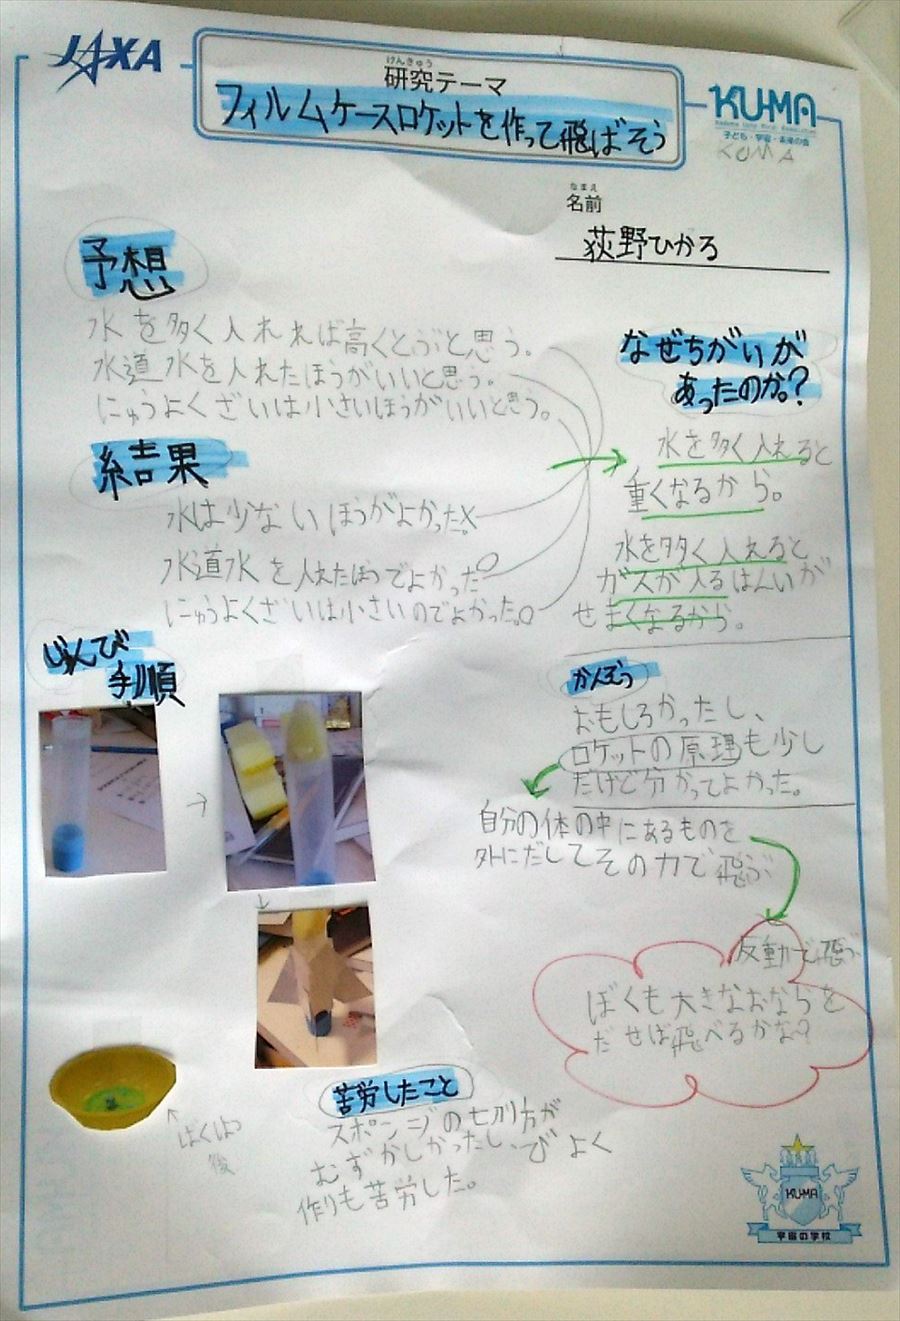 JAXA
けんきゅう
研究テーマ
フィルムケースロケットを作って飛ばそう
KU-MA
子ども・宇宙・未来の会
KUMA
なまえ
名前
荻野ひかる
予想
水を多く入れれば高くとぶと思う。
水道水を入れたほうがいいと思う。
にゅうよくざいは小さいほうがいいと思う。
結果
水は少ないほうがよかった。×
水道水を入れたほうでよかった○
にゅうよくざいは小さいのでよかった。○
なぜちがいが
あったのか。?
水を多く入れると
重くなるから。
水を多く入れると
ガスが入るはんいが
せまくなるから。
じゅんび
手順
→
→
↓
かんそう
おもしろかったし、
ロケットの原理も少し
だけど分かってよかった。
自分の体の中にあるものを
外にだしてその力で飛ぶ
反動で飛ぶ
ぼくも大きなおならを
だせば飛べるかな?
ばくはつ
後
苦労したこと
スポンジの切り方が
むずかしかったし、びよく
作りも苦労した。
KU-MA
宇宙の学校